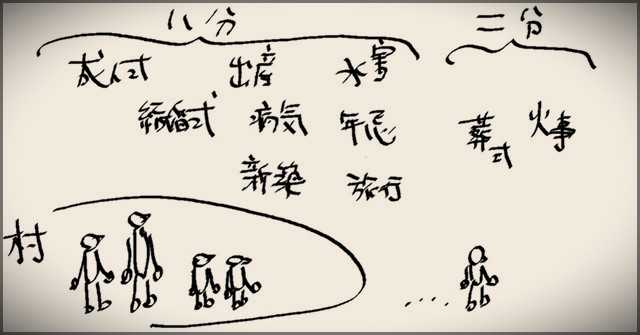 八分 二分
成人式 出産 水害
結婚式 病気 年忌 葬式 火事
新築 旅行
村